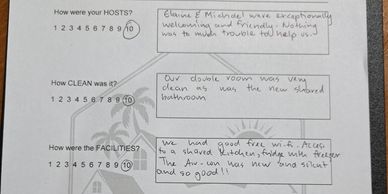 How were your HOSTS?
1 2 3 4 5 6 7 8 9 10
Elaine & Michael were exceptionally
welcoming and friendly. Nothing
was to much trouble to help us.
How CLEAN was it?
1 2 3 4 5 6 7 8 9 10
Our double room was very
clean as was the new shared
bathroom
How were the FACILITIES?
1 2 3 4 5 6 7 8 9 10
we had good free wi-fi. Access
to a shared kitchen, fridge with freezer
The Air-con was new and silent
and so good!!